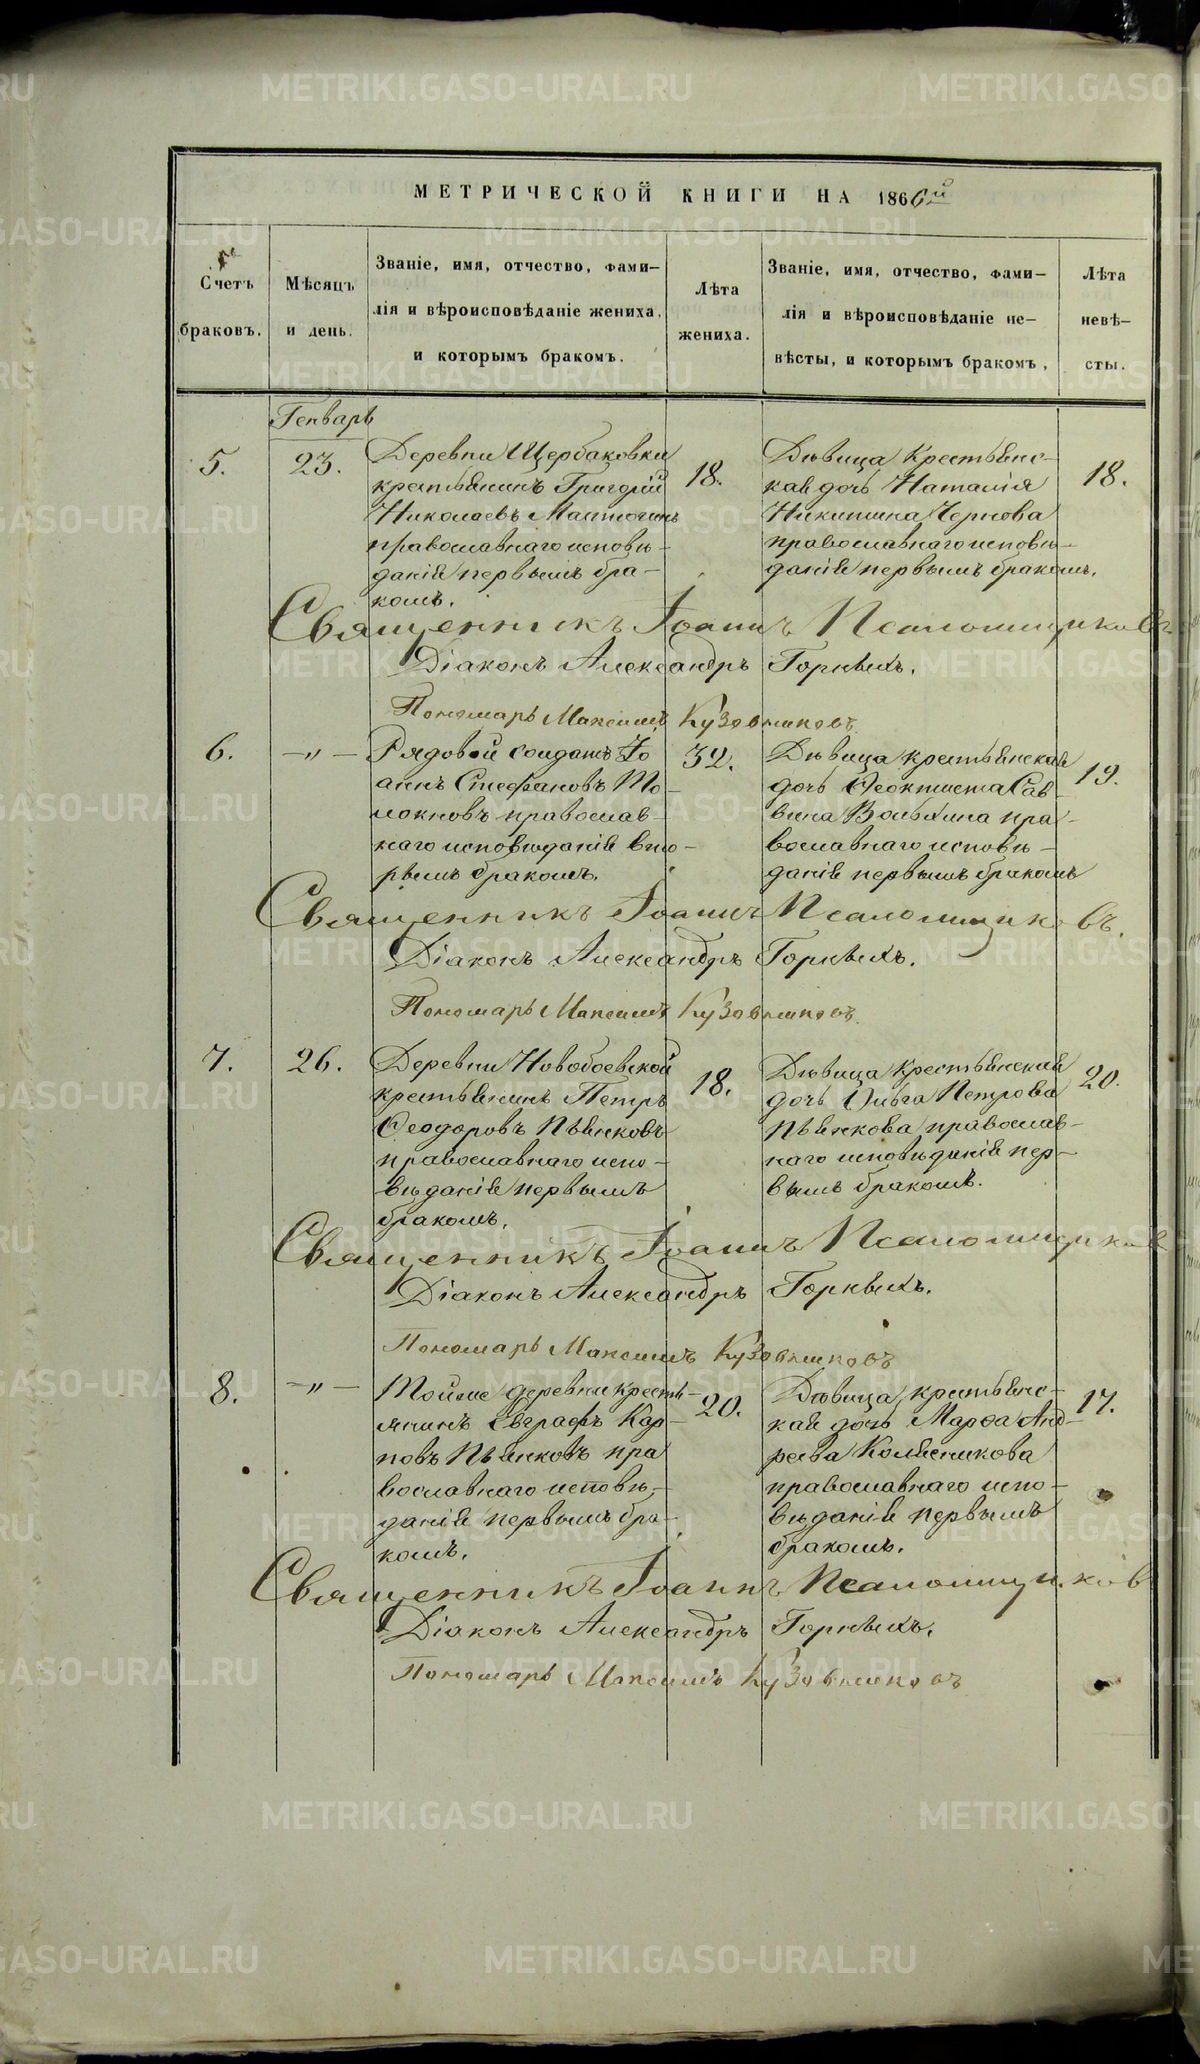 МЕТРИЧЕСКОЙ КНИГИ НА 1866й
Счетъ браковъ.
Мѣсяцъ и день.
Званіе, имя, отчество, фами-
лія и вѣроисповѣданіе жениха,
и которымъ бракомъ.
Лѣта жениха.
Званіе, имя, отчество, фами-
лія и вѣроисповѣданіе не-
вѣсты, и которымъ бракомъ,
Лѣта невѣ-
сты.
Генварь
5.
23.
Деревни Щербаковки
крестьянинъ Григорій
Николаевъ
православнаго исповѣ-
данія первымъ бра-
комъ.
18.
Дѣвица крестьянс-
кая дочь Наталія
Никитина Чернова
православнаго исповѣ-
данія первымъ бракомъ.
18.
Священникъ Іоаннъ Псаломщиковъ
Діаконъ Александръ Горныхъ.
Пономарь Максимъ Кузовниковъ
6.
—„—
Рядовой солдатъ Іо
аннъ Стефановъ То-
локновъ православ-
наго исповѣданія вто-
рымъ бракомъ.
32.
Дѣвица крестьянская
дочь Феоктиста Сав-
вина Волынина пра-
вославнаго исповѣ-
данія первымъ бракомъ
19.
Священникъ Іоаннъ Псаломщиковъ.
Діаконъ Александръ Горныхъ.
Пономарь Максимъ Кузовниковъ
7.
26.
Деревни Новобоевской
крестьянинъ Петръ
Ѳеодоровъ Пьянковъ
православнаго испо-
вѣданія первымъ
бракомъ.
18.
Дѣвица крестьянская
дочь Ольга Петрова
Пьянкова православ-
наго исповѣданія пер-
вымъ бракомъ.
20.
Священникъ Іоаннъ Псаломщиков
Діаконъ Александръ Горныхъ.
Пономарь Максимъ Кузовниковъ
8.
—„—
Тойже деревни кресть-
янинъ Евграфъ Кар-
повъ Пьянковъ пра
вославнаго исповѣ-
данія первымъ бра-
комъ.
20.
Дѣвица крестьянс-
кая дочь Марѳа Анд-
реева Колясникова
православнаго испо-
вѣданія первымъ
бракомъ.
17.
Священникъ Іоаннъ Псаломщиков
Діаконъ Александръ Горныхъ.
Пономарь Максимъ Кузовниковъ
METRIKI.GASO-URAL.RU